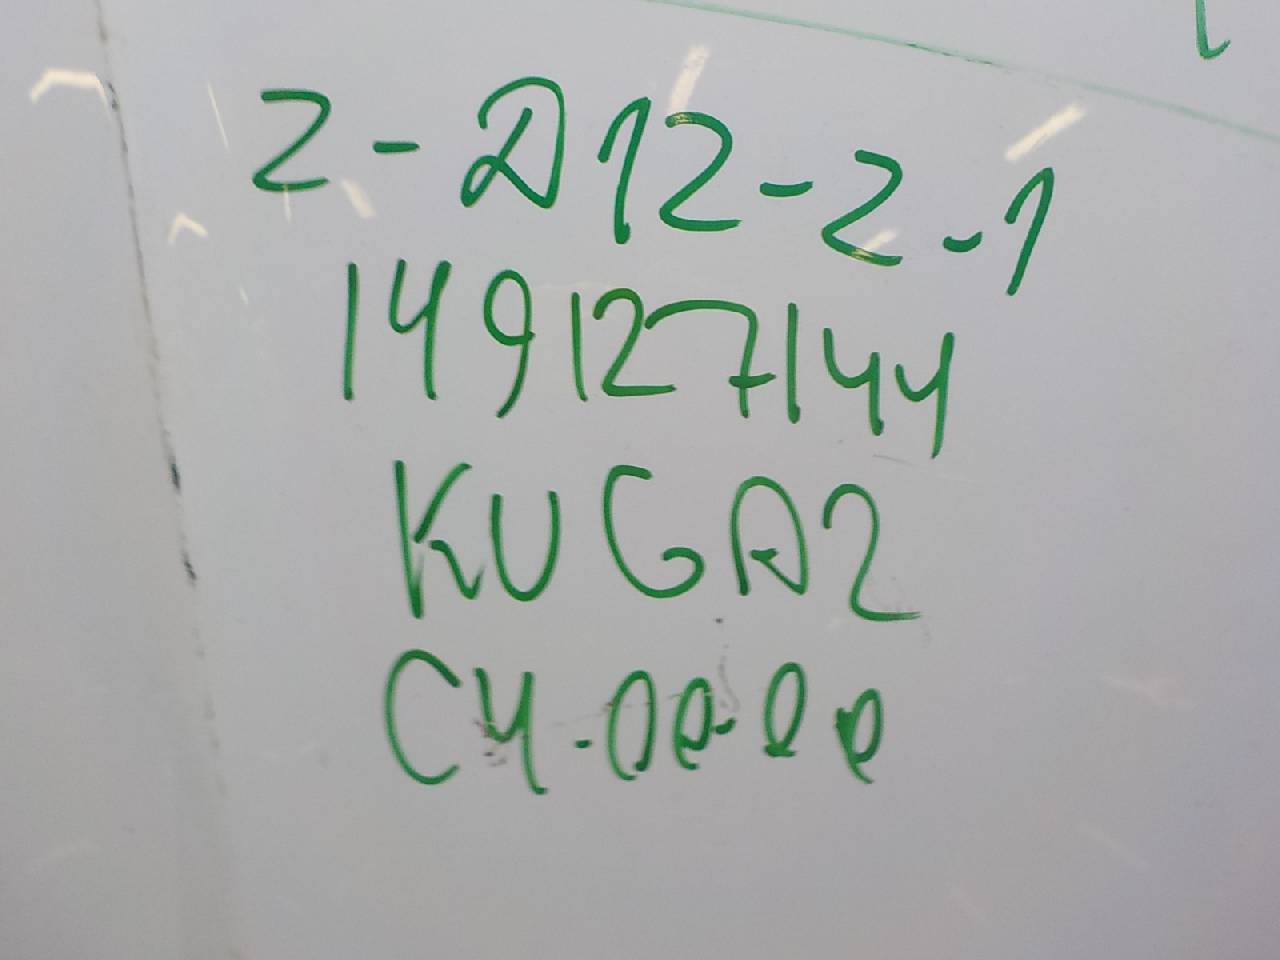 2-Д12-2-1
149127144
KUGA2
C4-00-00